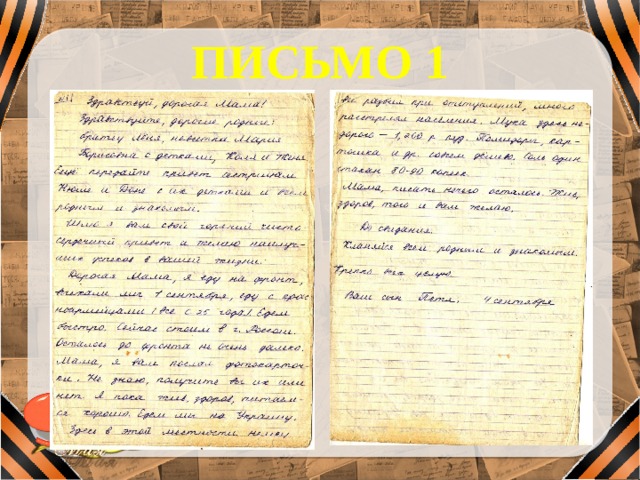 ПИСЬМО 1
Здравствуй, дорогая Мама!
Здравствуйте, дорогие родные:
братец Лёня, невестка Мария
Борисовна с детками, Коля и Женя
Ещё передайте привет сестрицам
Нюше и Доне с их детками и всем
родным и знакомым.
Шлю я вам свой горячий чисто-
сердечный привет и желаю наилуч-
ших успехов в вашей жизни.
Дорогая Мама, я еду на фронт,
выехали мы 1 сентября, еду с крас-
ноармейцами (все с 25 года). Едем
быстро. Сейчас стоим в г.
Осталось до фронта не очень далеко.
Мама, я вам послал фотокарточ-
ки. Не знаю, получите вы их или
нет. Я пока жив, здоров, питаем-
ся хорошо. Едем мы на Украину.
Здесь в этой местности немец
все разбил при отступлении, много
расстрелял населения. Мука здесь не-
дорого – 1,200 р. пуд. Помидоры, кар-
тошка и др. совсем дёшево. Соль один
стакан 80-90 копеек.
Мама, писать нечего осталось. Жив,
здоров, того и вам желаю.
До свидания.
Кланяйся всем родным и знакомым.
Крепко вас целую.
Ваш сын Петя. 4 сентября